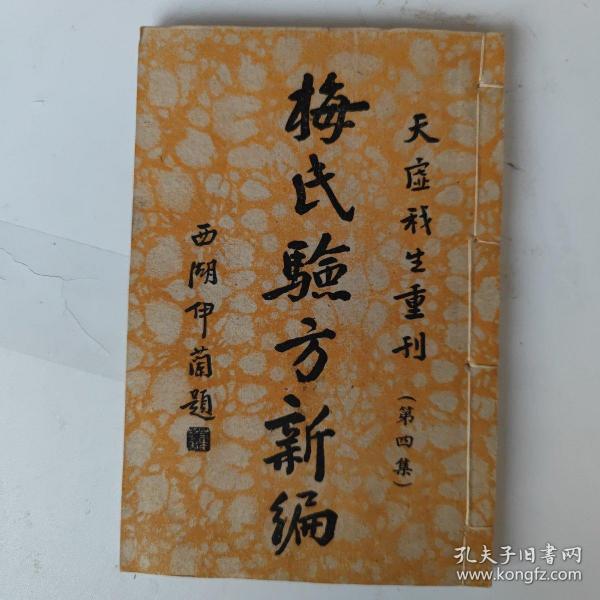 天虛我生重刊
(第四集)
梅氏驗方新編
西湖伊蘭題
孔夫子旧書网
www.kongfz.com